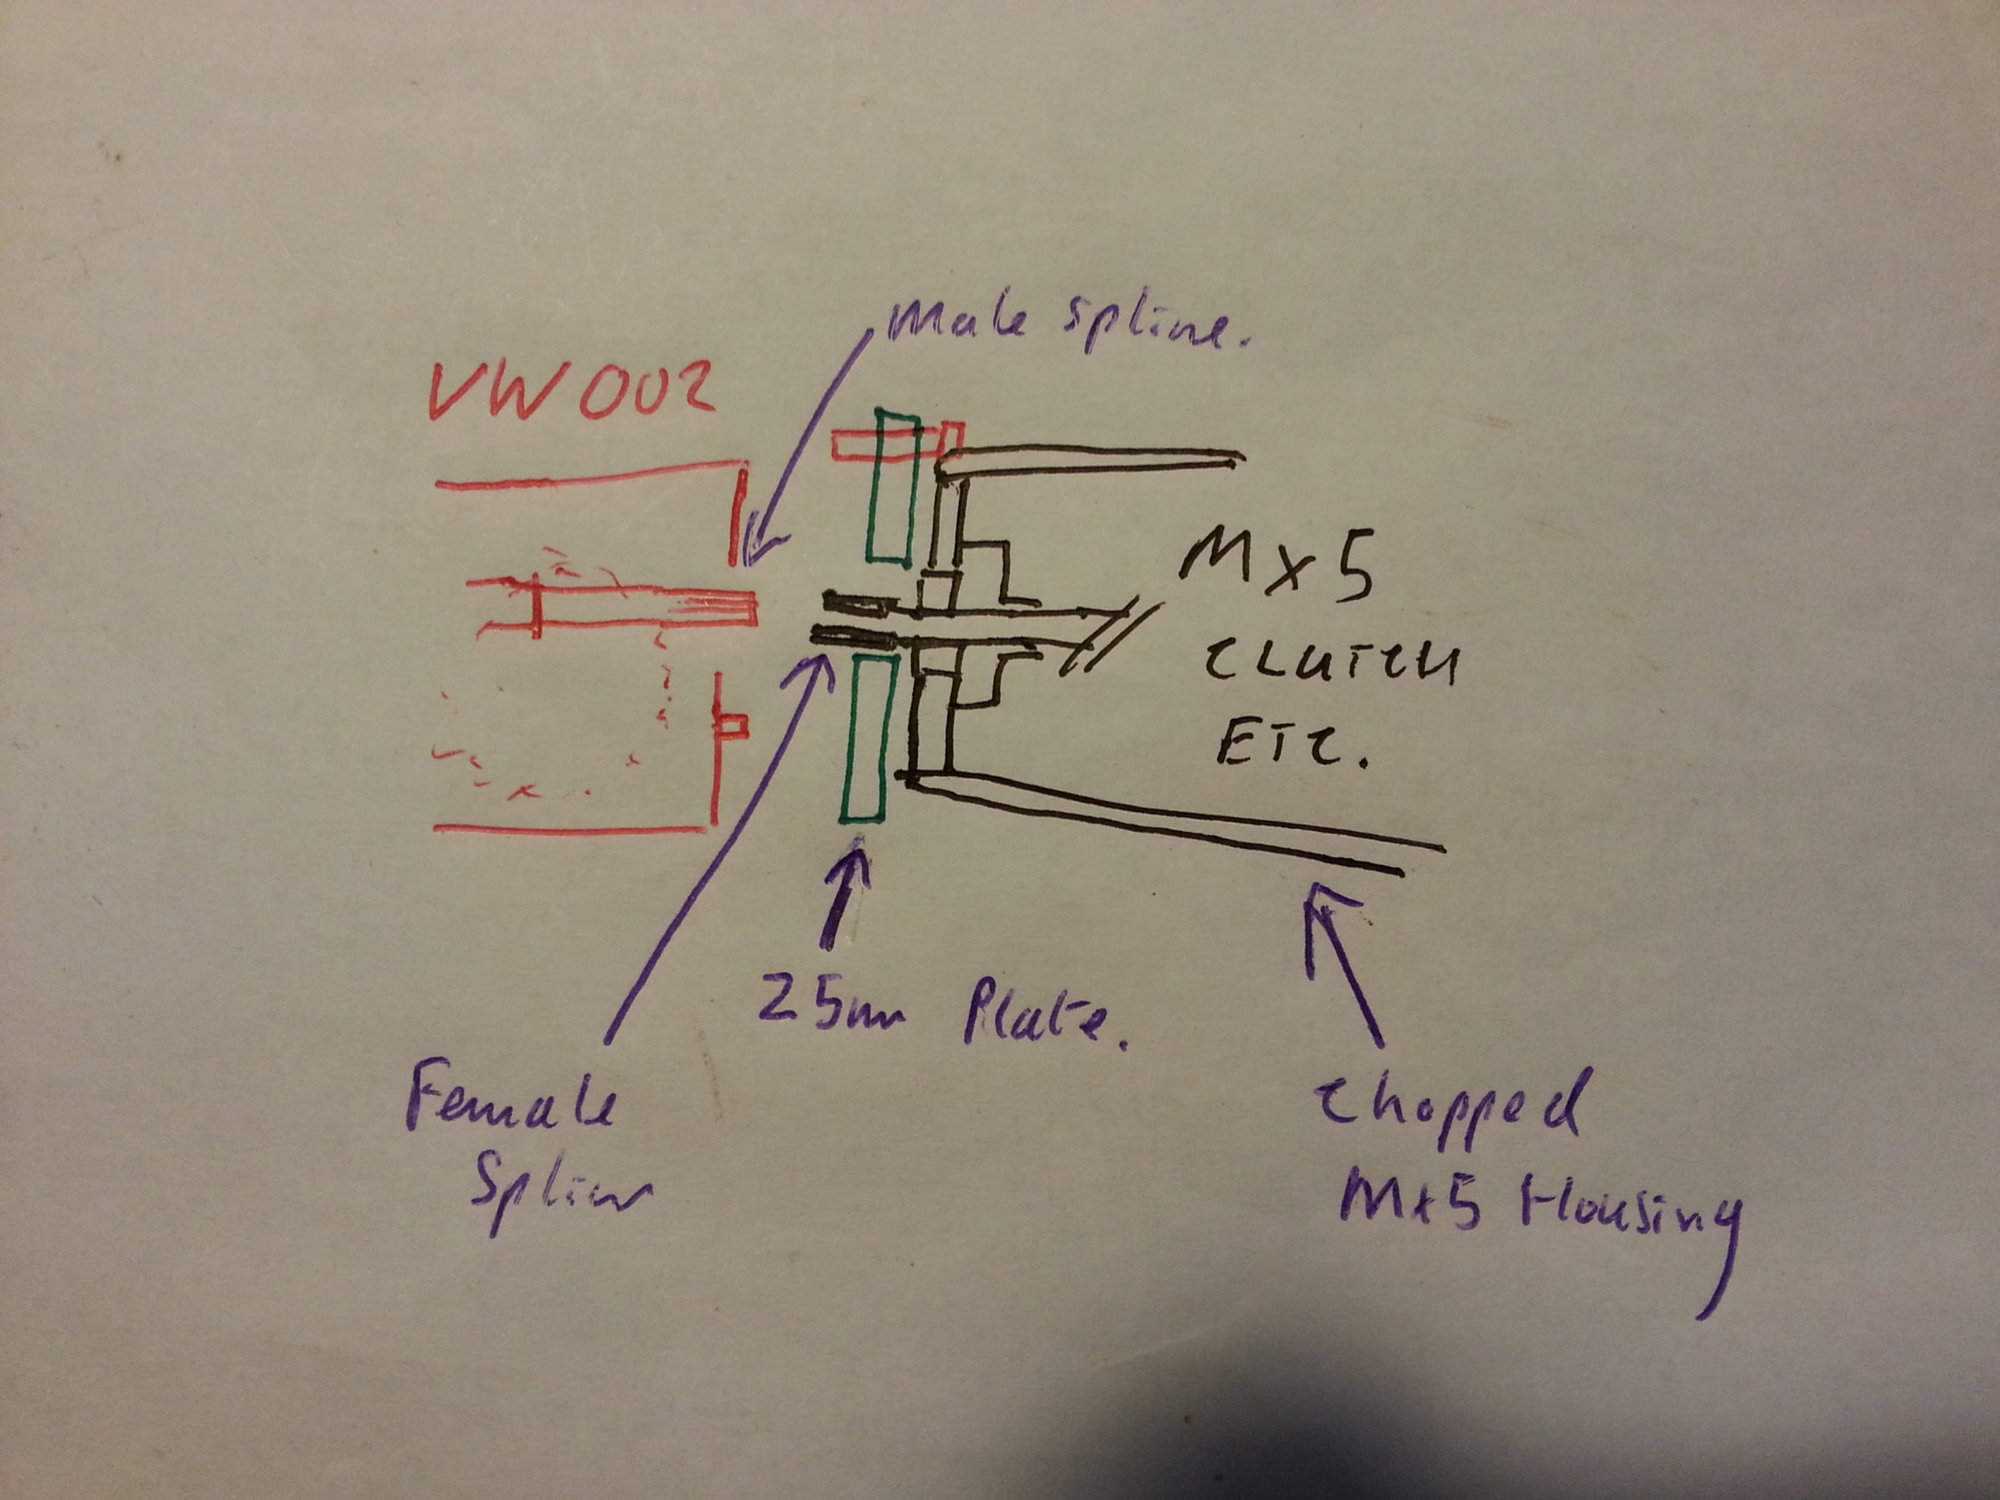 Male spline.
VW002
Mx5
CLUTCH
ETC.
25mm Plate.
Female
Spline
Chopped
Mx5 Housing